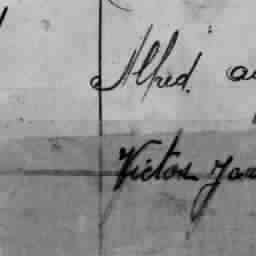 Alfred. a
Victor Ja